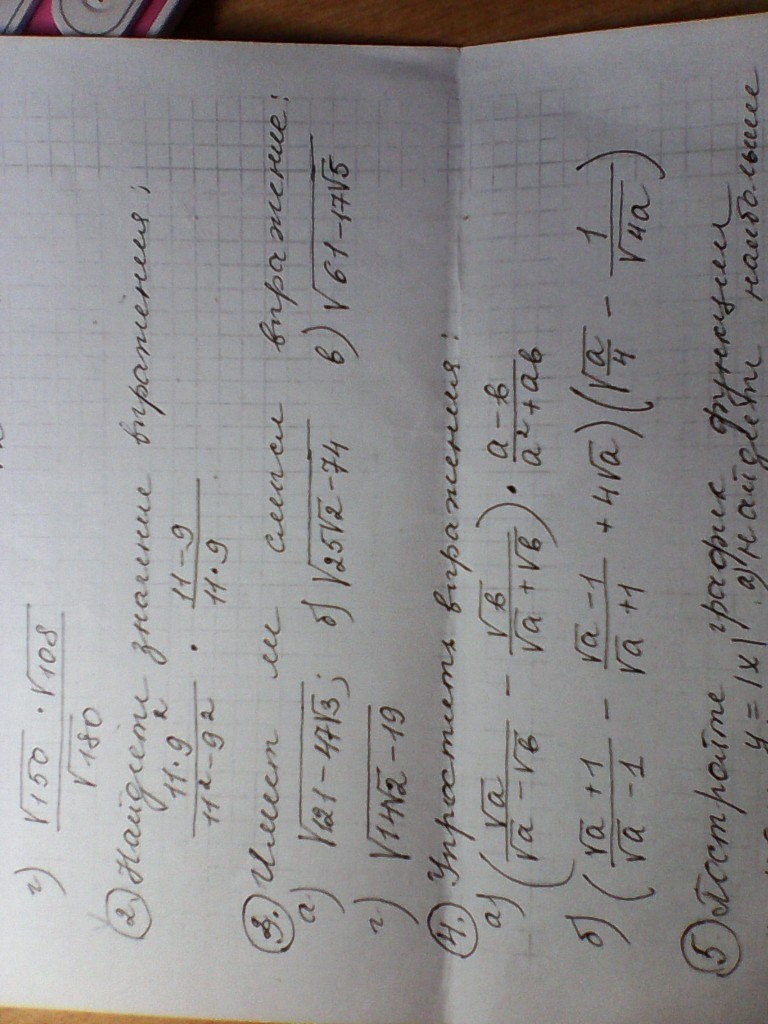 г) √150 · √108 / √180
② Найдите значение выражения:
11·9² / 11² - 9² · 11-9 / 11·9
③. Имеет ли смысл выражение:
а) √121-47√3; б) √25√2-74 в) √61-17√5
г) √14√2-19
④. Упростить выражения:
а) (√a / √a-√b - √b / √a+√b) · a-b / a²+ab
б) (√a+1 / √a-1 - √a-1 / √a+1 + 4√a)(√a/4 - 1 / √4a)
⑤ Постройте график функции
y = |x| а) найдите наибольшее